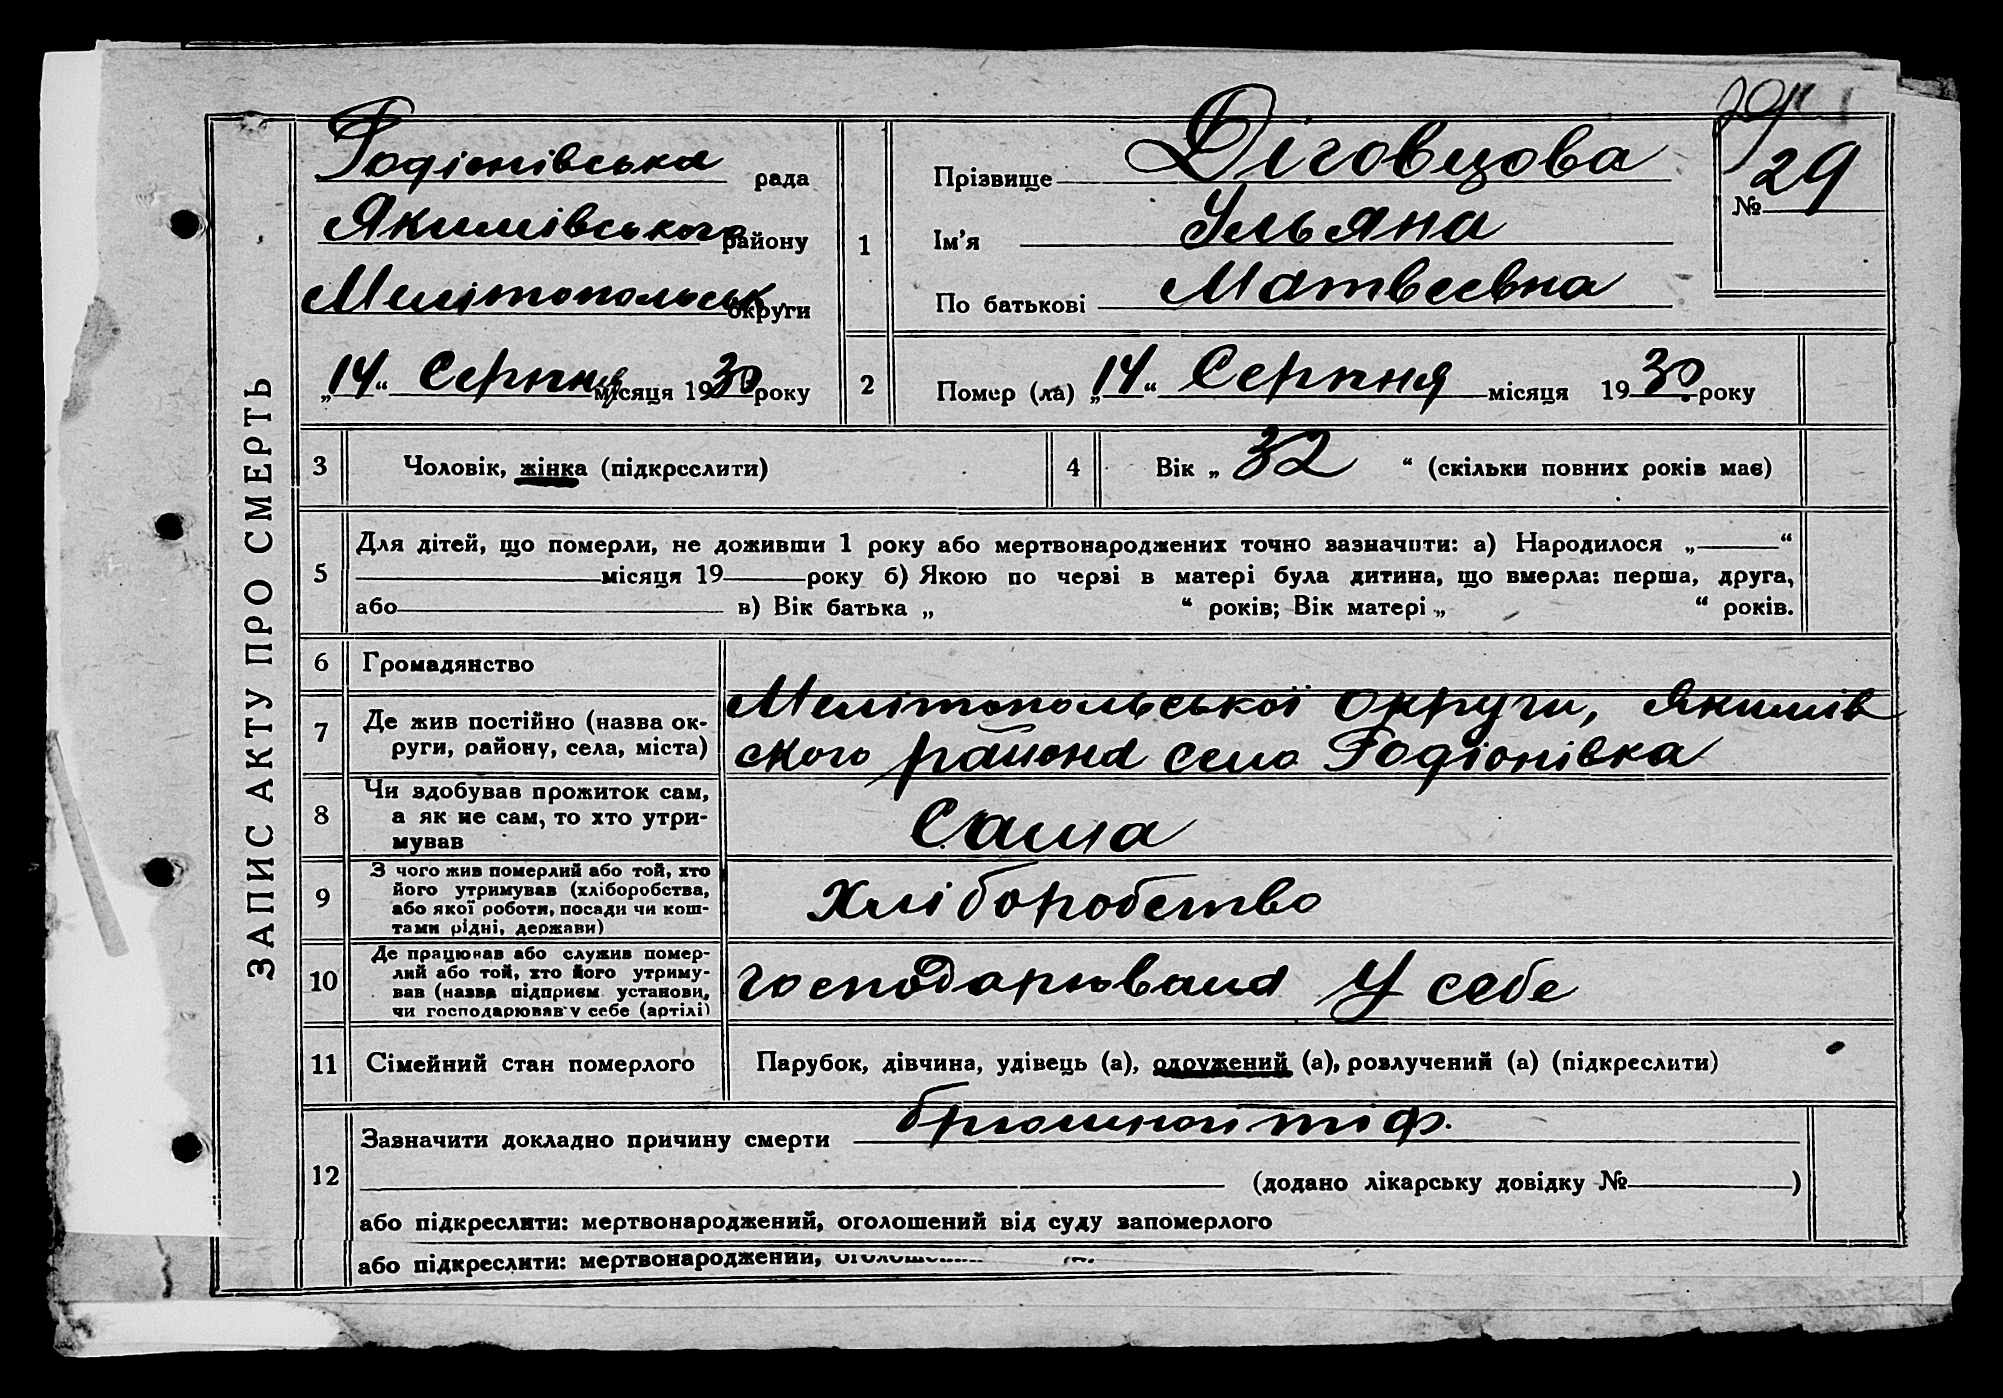 ЗАПИС АКТУ ПРО СМЕРТЬ
Родіонівська рада
Якимівського району
Мелітопольськ. округи
„14“ Серпня місяця 1930 року
1
Прізвище Діговцова
Ім’я Ульяна
По батькові Матвеевна
29
№ 29
2
Помер (ла) „14“ Серпня місяця 1930 року
3
Чоловік, жінка (підкреслити)
4
Вік „ 32 “ (скільки повних років має)
5
Для дітей, що померли, не доживши 1 року або мертвонароджених точно зазначити: а) Народилося „ “
місяця 19 року б) Якою по черзі в матері була дитина, що вмерла: перша, друга,
або в) Вік батька „ “ років; Вік матері „ “ років.
6
Громадянство
7
Де жив постійно (назва ок-
руги, району, села, міста)
Мелітопольської округи, Якимів
ского района село Родіонівка
8
Чи здобував прожиток сам,
а як не сам, то хто утри-
мував
Сама
9
З чого жив померлий або той, хто
його утримував (хліборобства,
або якої роботи, посади чи кош-
тами рідні, держави)
Хліборобство
10
Де працював або служив помер-
лий або той, хто його утриму-
вав (назва підприєм. установи,
чи господарював у себе (артілі)
господарювала у себе
11
Сімейний стан померлого
Парубок, дівчина, удівець (а), одружений (а), розлучений (а) (підкреслити)
12
Зазначити докладно причину смерти брюшной тіф.
(додано лікарську довідку № )
або підкреслити: мертвонароджений, оголошений від суду запомерлого
або підкреслити: мертвонароджений,